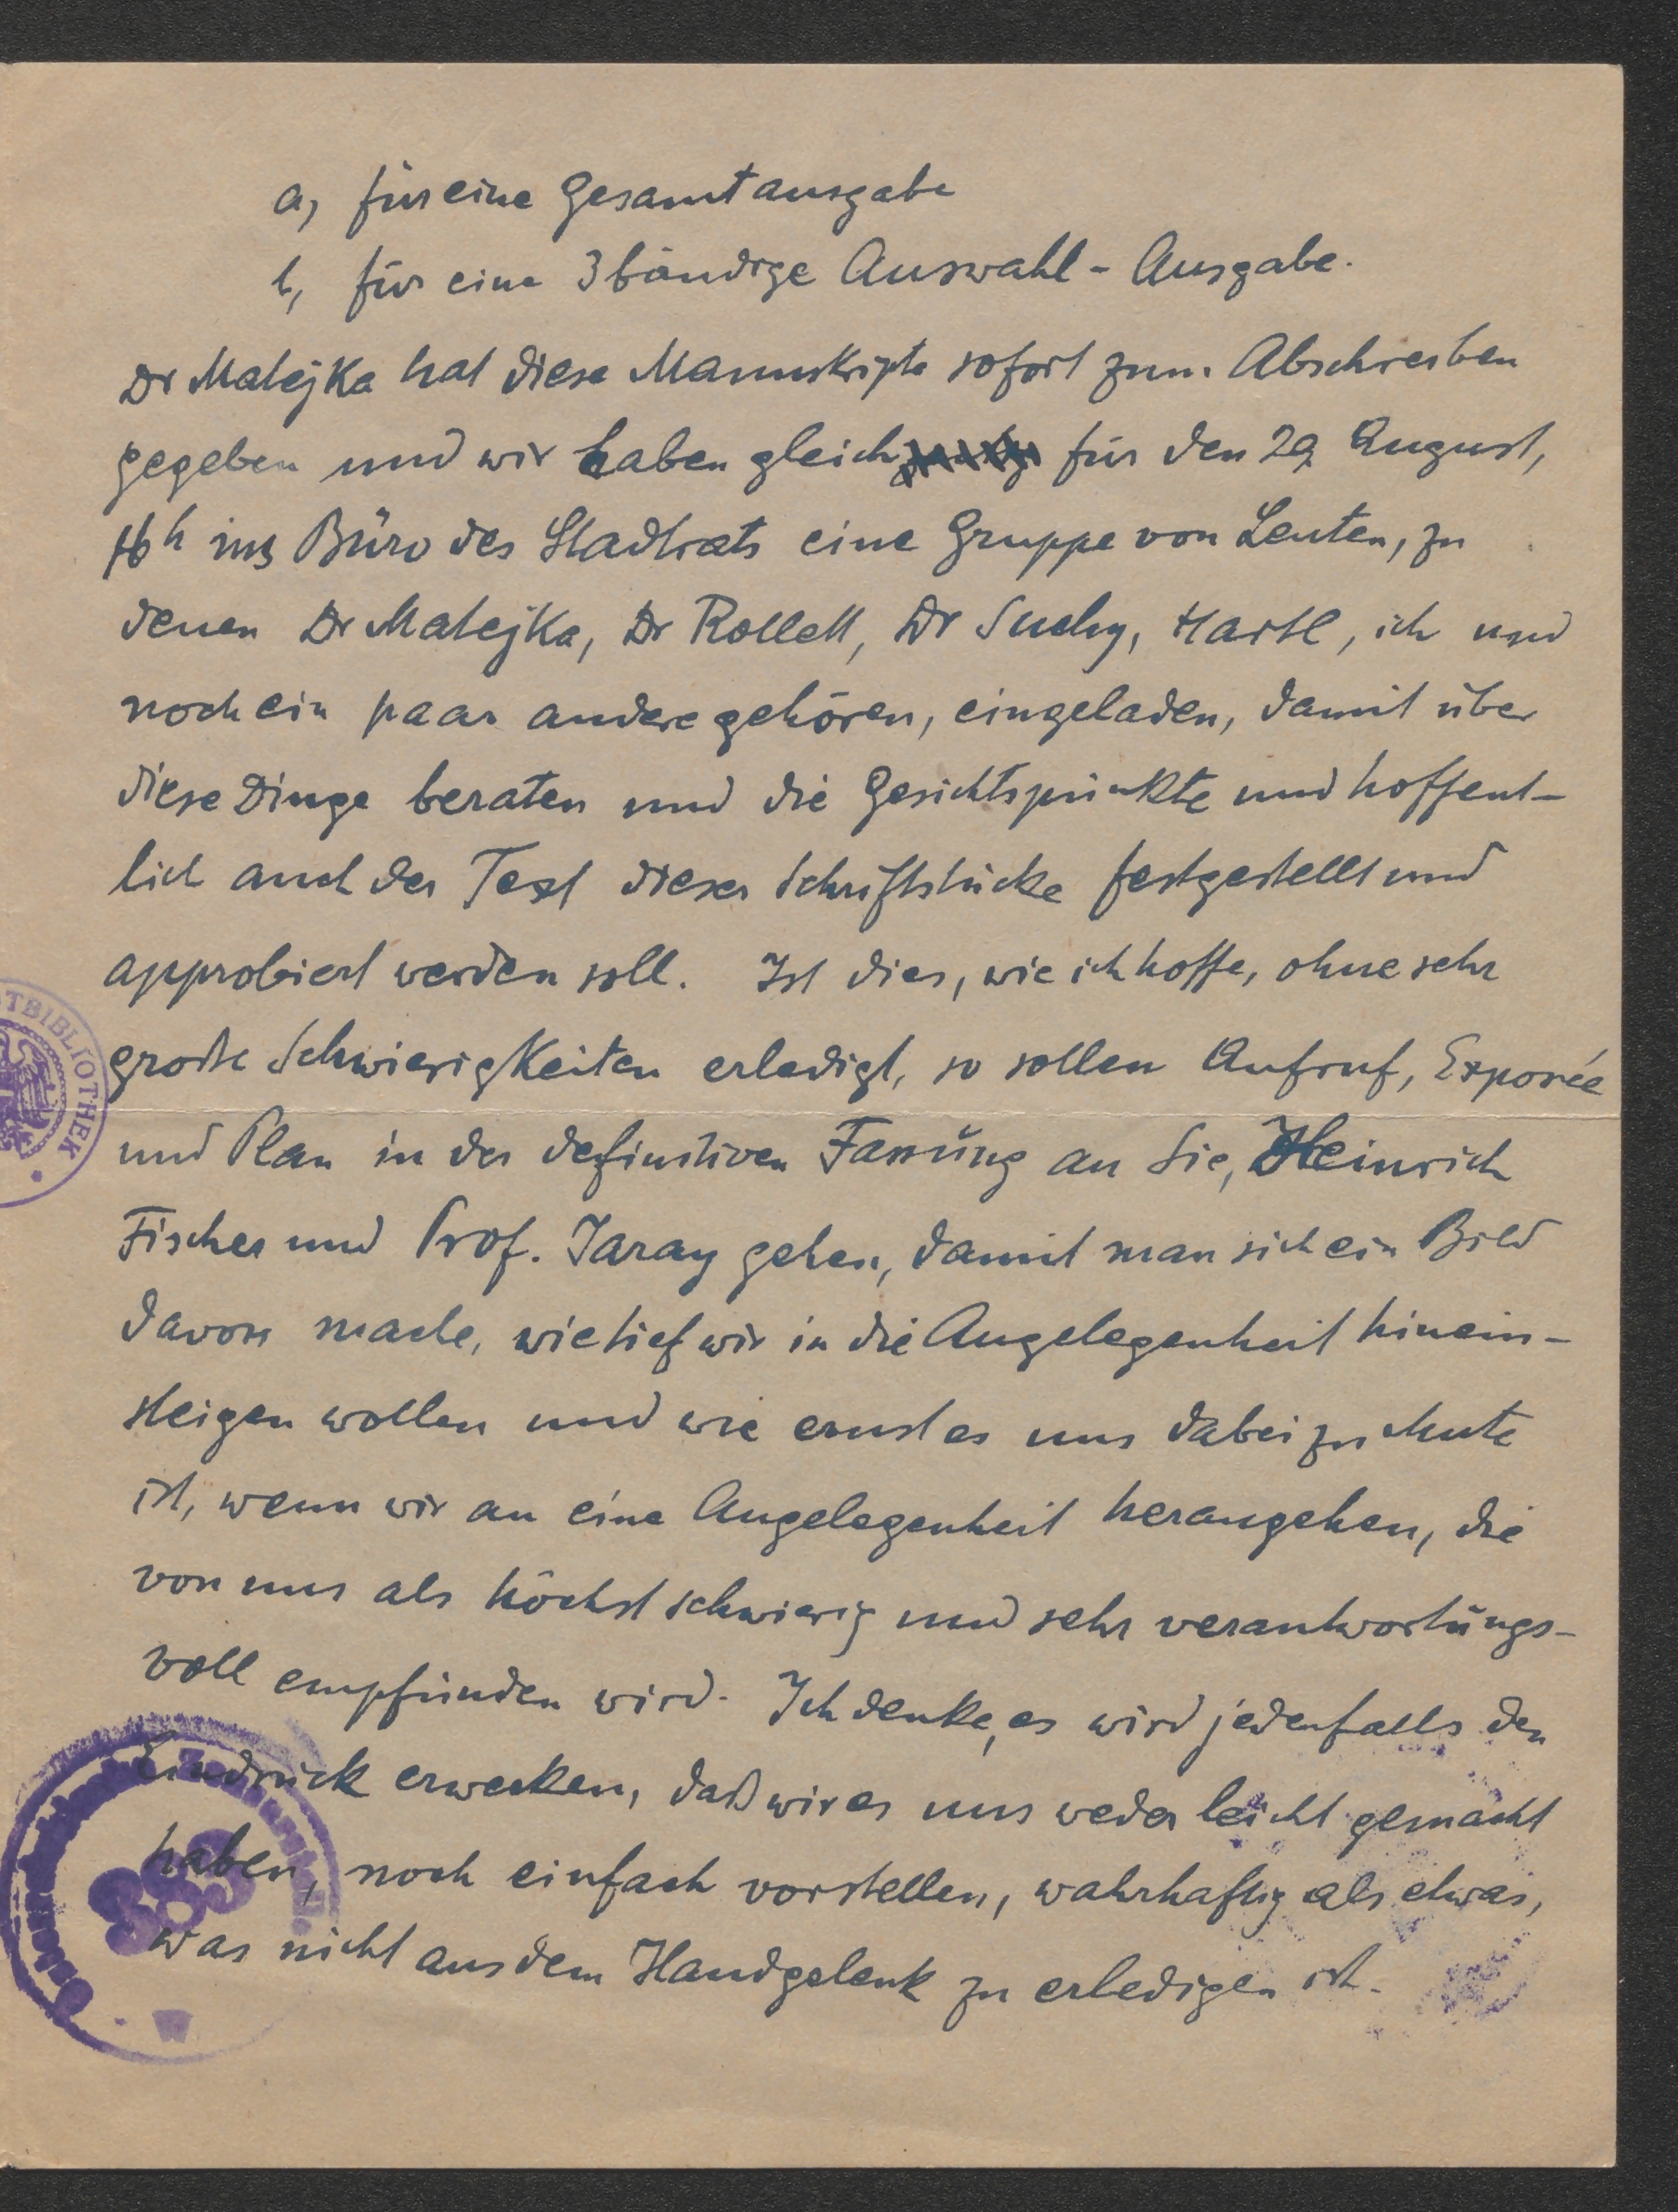 a, für eine Gesamtausgabe
b, für eine 3bändige Auswahl-Ausgabe.
Dr Matejka hat diese Manuskripte sofort zum Abschreiben
gegeben und wir haben gleich für den 29. August,
16h ins Büro des Stadtrats eine Gruppe von Leuten, zu
denen Dr Matejka, Dr Rollett, Dr Suchy, Hartl, ich und
noch ein paar andere gehören, eingeladen, damit über
diese Dinge beraten und die Gesichtspunkte und hoffent-
lich auch der Text dieser Schriftstücke festgestellt und
approbiert werden soll. Ist dies, wie ich hoffe, ohne sehr
große Schwierigkeiten erledigt, so sollen Aufruf, Exposée
und Plan in der definitiven Fassung an Sie, Heinrich
Fischer und Prof. Jaray gehen, damit man sich ein Bild
davon mache, wie tief wir in die Angelegenheit hinein-
steigen wollen und wie ernst es uns dabei zu Mute
ist, wenn wir an eine Angelegenheit herangehen, die
von uns als höchst schwierig und sehr verantwortungs-
voll empfunden wird. Ich denke, es wird jedenfalls den
Eindruck erwecken, daß wir es uns weder leicht gemacht
haben, noch einfach vorstellen, wahrhaftig als etwas,
was nicht aus dem Handgelenk zu erledigen ist.
TBIBLIOTHEK
383
W